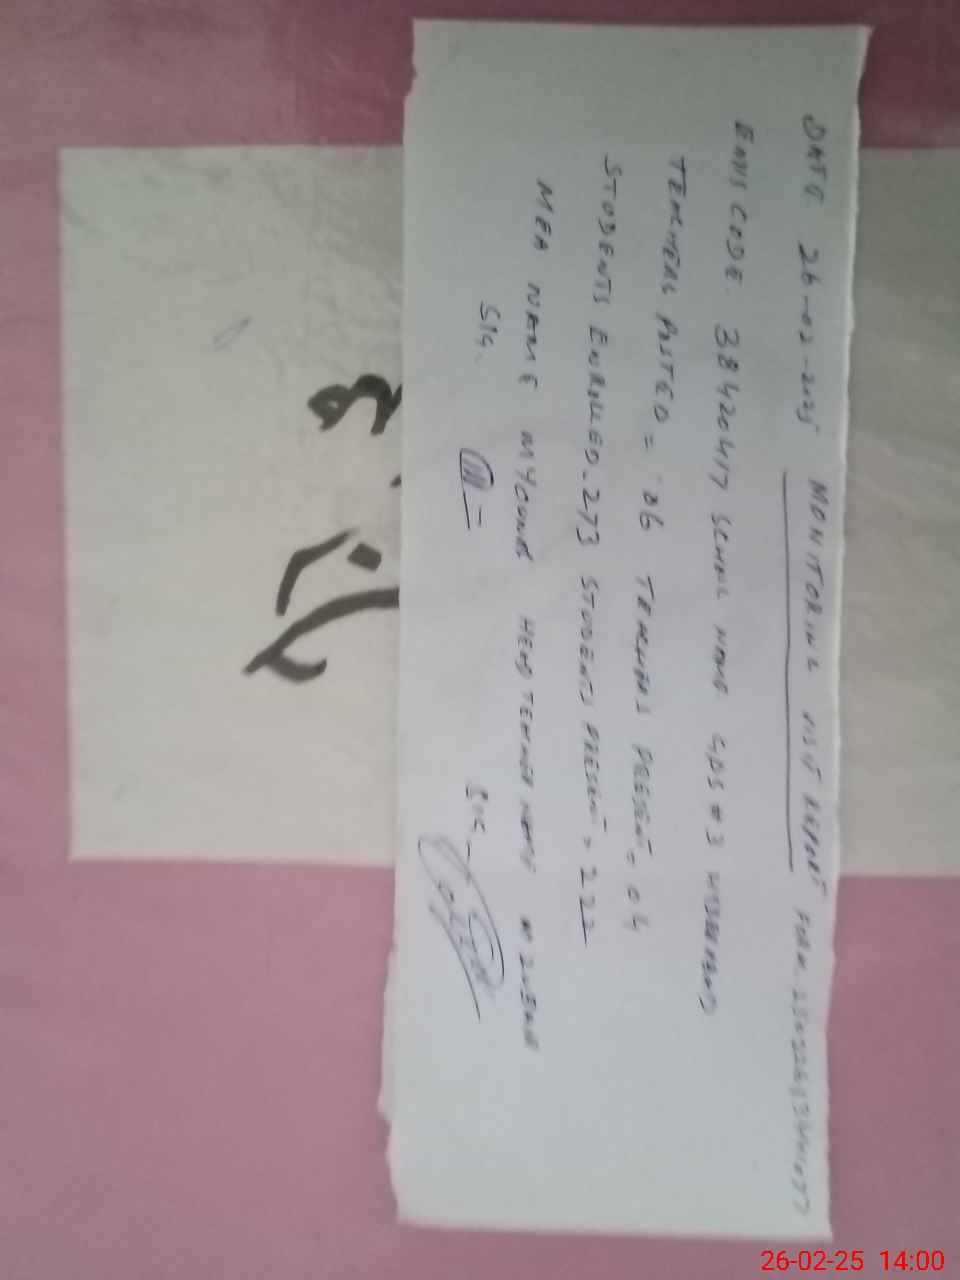 DATE 26-02-2025 MONITORING VISIT REPORT FORM.
EMIS CODE. 38420417 SCHOOL NAME GPS # 3
TEACHERS POSTED = 06 TEACHERS PRESENT = 04
STUDENTS ENROLLED - 273 STUDENTS PRESENT = 222
MEA NAME M YOUNAS HEAD TEACHER NAME M ZUBAIR
SIG. SIG.
26-02-25 14:00